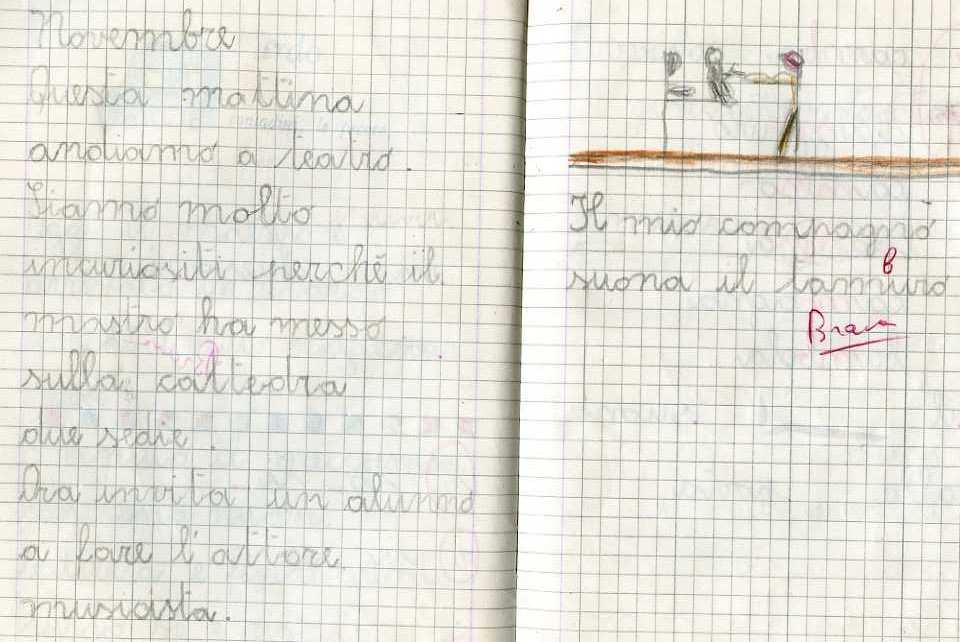 Novembre
Questa mattina
andiamo a teatro.
Siamo molto
incuriositi perchè il
mastro ha messo
sulla cattedra
due sedie.
Ora invita un alunno
a fare l'attore
musicista.
Il mio compagno
suona il tamburo
Brava